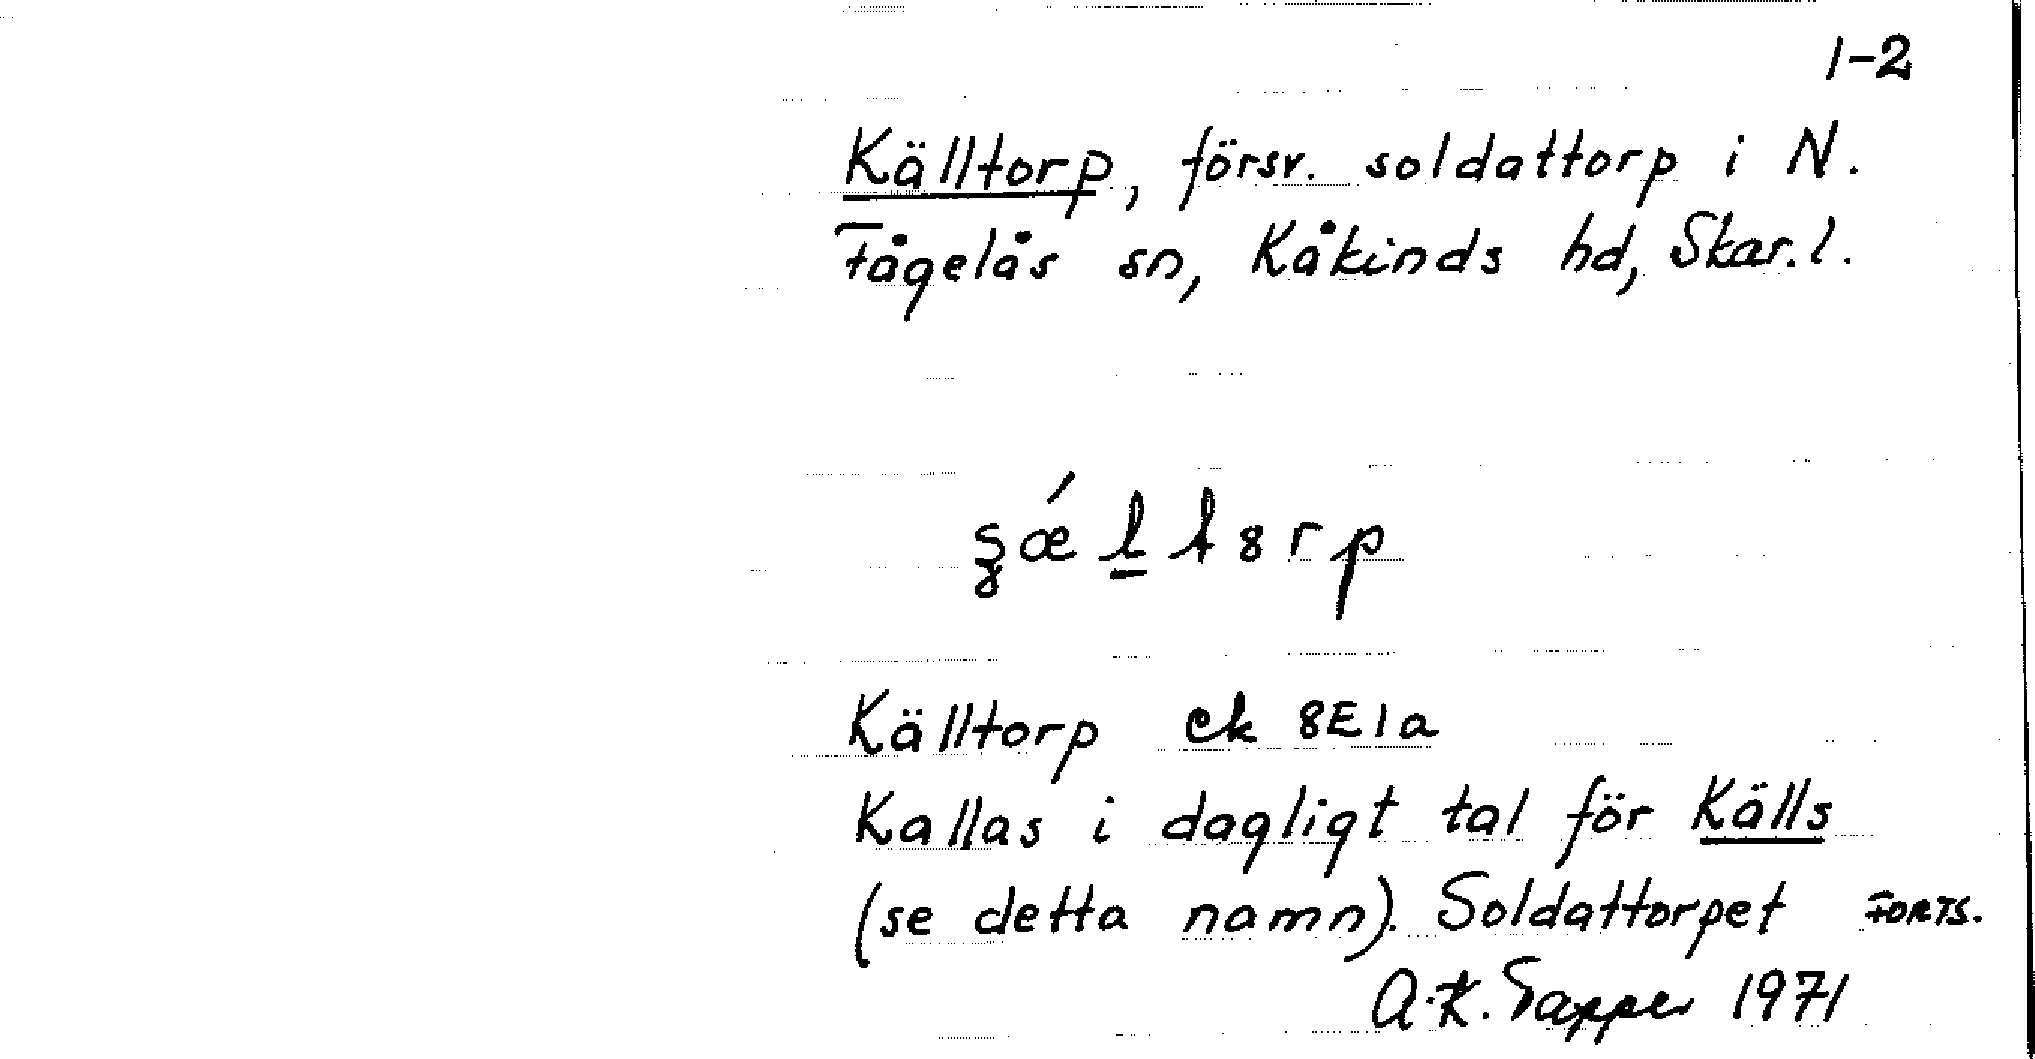 1-2
Källtorp, försv. soldattorp i N.
Fågelås sn, Kåkinds hd, Skar. l.
Källtorp ek 8E1a
Kallas i dagligt tal för Källs
(se detta namn). Soldattorpet FORTS.
A.K. Tapper 1971